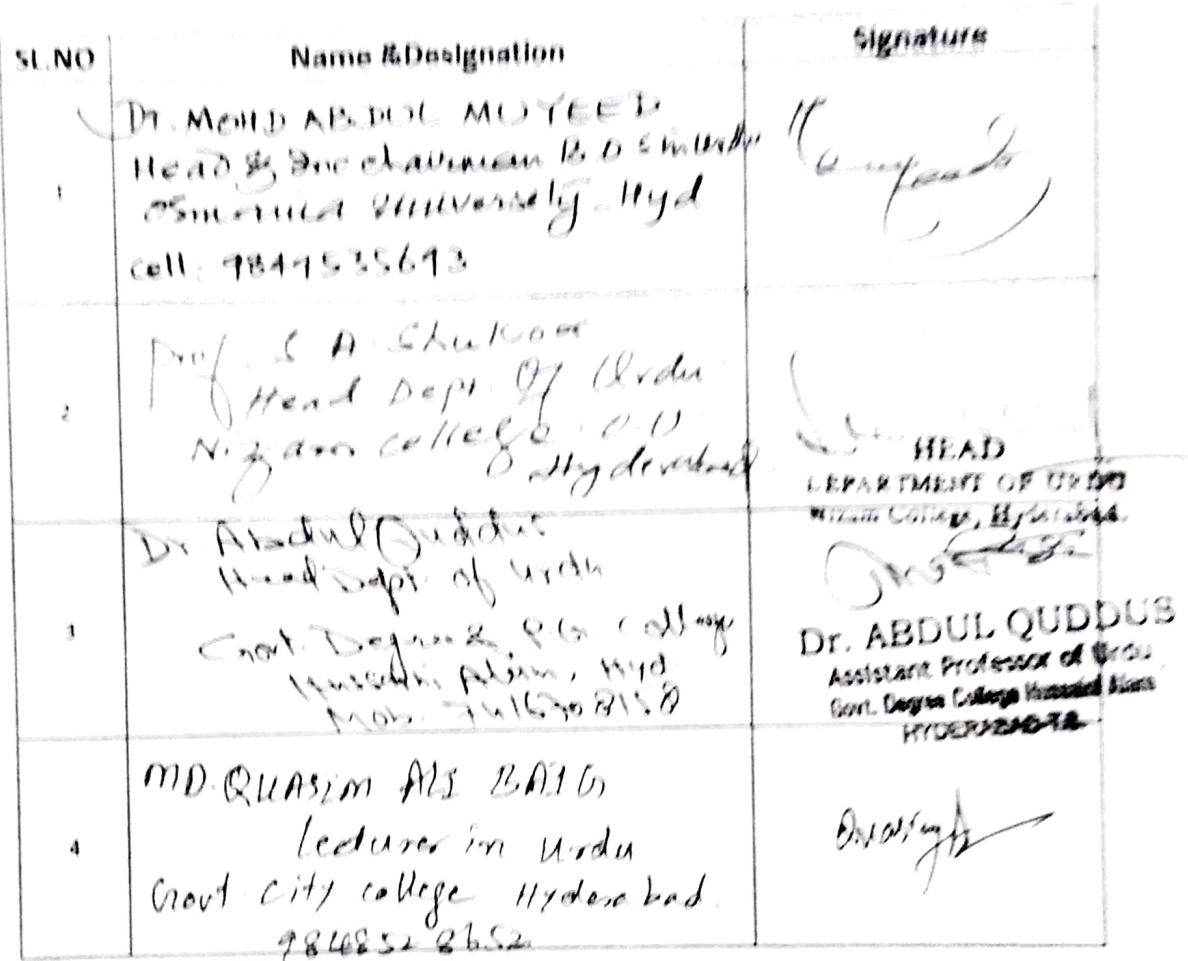 SL.NO Name &Designation Signature
1
Dr. MOHD ABDUL MOYEED
Head & Inc chairman B O S in Urdu
Osmania University Hyd
cell: 9849535693
2
Prof. S A Shukoor
Head Dept. Of Urdu
Nizam college O.U
Hyderabad
HEAD
DEPARTMENT OF URDU
Nizam College, Hyderabad.
3
Dr Abdul Quddus
Head Dept. of Urdu
Govt. Degree & P.G College
Hussaini Alam, Hyd
Mob.
Dr. ABDUL QUDDUS
Assistant Professor of Urdu
Govt. Degree College Hussaini Alam
HYDERABAD-T.S.
4
MD. QUASIM ALI BAIG
lecturer in Urdu
Govt City college Hyderabad
9848528652